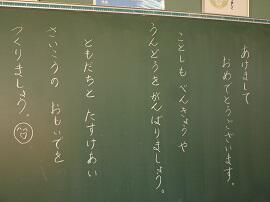 あけまして
おめでとうございます。
ことしも べんきょうや
うんどうをがんばりましょう。
ともだちと たすけあい
さいこうの おもいでを
つくりましょう。